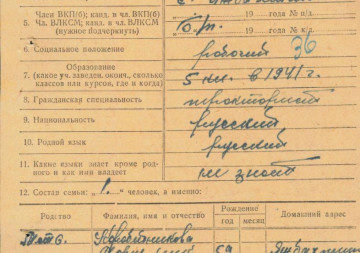 Член ВКП(б); канд. в чл. ВКП(б) 19 года № п/л.
5. Чл. ВЛКСМ; канд. в чл. ВЛКСМ б/п. 19 года № к/л.
(нужное подчеркнуть)
6. Социальное положение рабочий 36
Образование
7. (какое уч. заведен. оконч., сколько 5 кл. в 1941 г.
классов или курсов, где и когда)
8. Гражданская специальность тракторист
9. Национальность русский
10. Родной язык русский
11. Какие языки знает кроме род-
ного и как ими владеет не знает
12. Состав семьи: „1.“ человек, а именно:
Родство Фамилия, имя и отчество Рождение Домашний адрес
год месяц